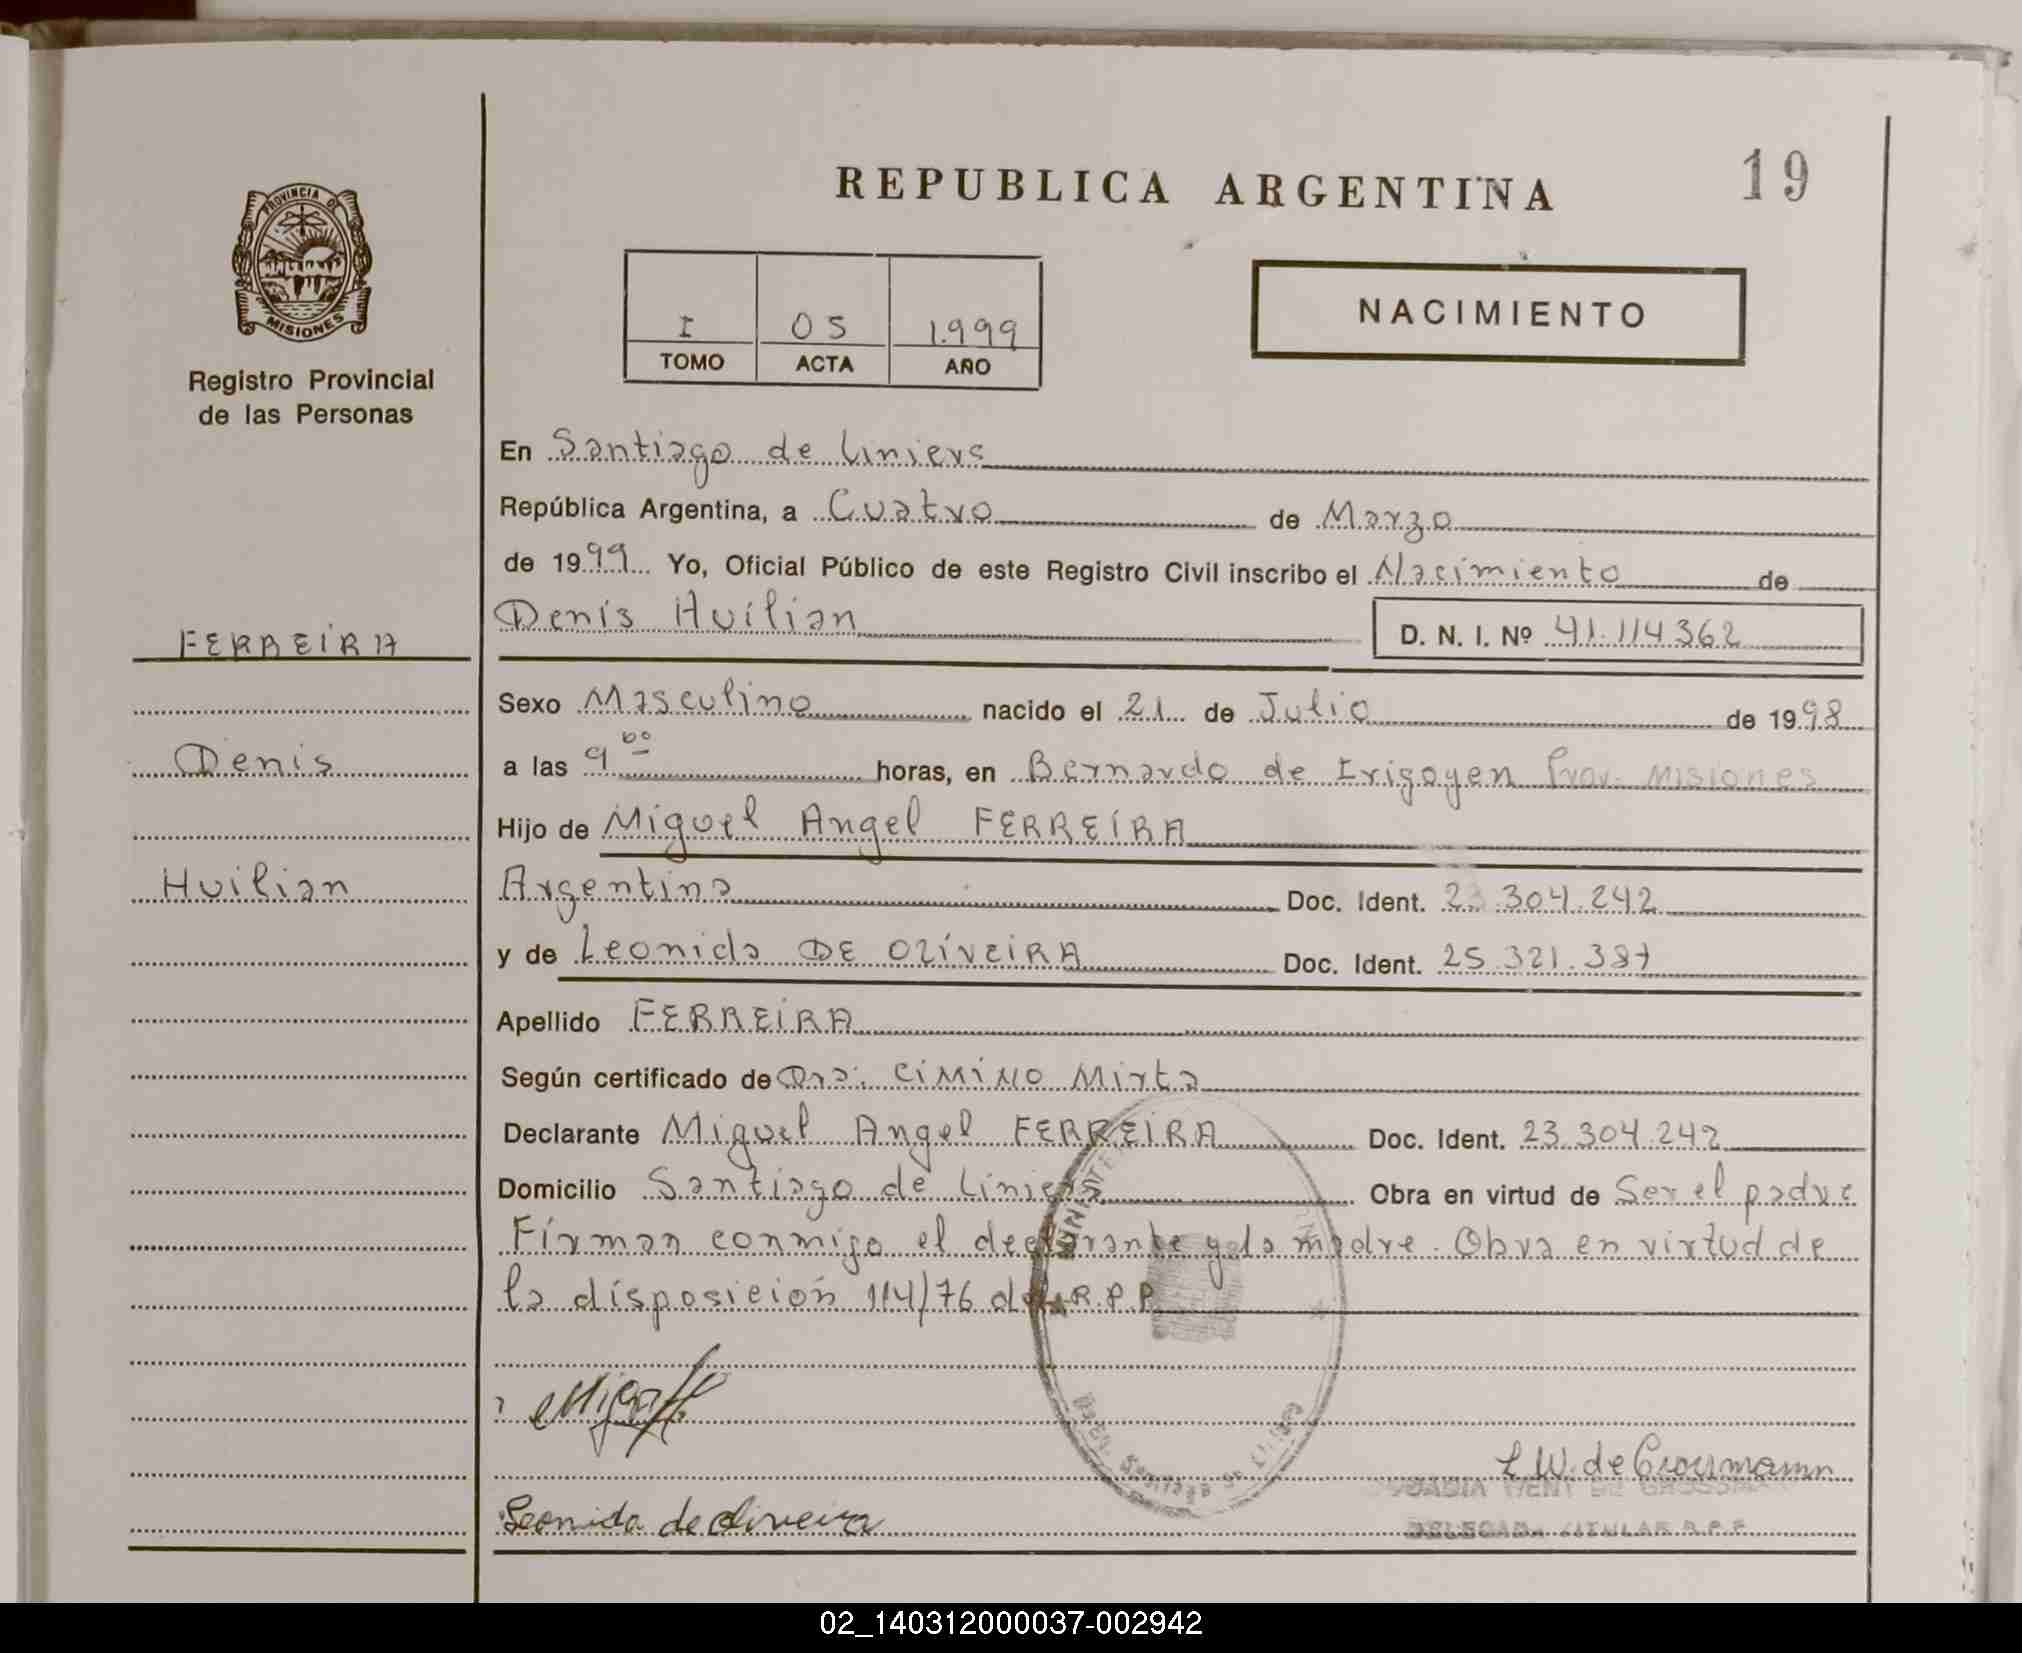 REPUBLICA ARGENTINA
19
PROVINCIA D
MISIONES
Registro Provincial
de las Personas
I
05
1.999
TOMO
ACTA
AÑO
NACIMIENTO
En Santiago de Liniers
República Argentina, a Cuatro de Marzo
de 1999 Yo, Oficial Público de este Registro Civil inscribo el Nacimiento de
Denis Huilian
D. N. I. Nº 41.114.362
FERREIRA
Denis
Huilian
Sexo Masculino nacido el 21 de Julio de 1998
a las 9 00 horas, en Bernardo de Irigoyen Prov. Misiones
Hijo de Miguel Angel FERREIRA
Argentina Doc. Ident. 23.304.242
y de Leonida DE OLIVEIRA Doc. Ident. 25.321.387
Apellido FERREIRA
Según certificado de Dra. CIMINO Mirta
Declarante Miguel Angel FERREIRA Doc. Ident. 23.304.242
Domicilio Santiago de Liniers Obra en virtud de Ser el padre
Firman conmigo el declarante y la madre. Obra en virtud de
la disposición 114/76 del R.P.P.
Leonida de oliveira
L W. de Grossmann
DELEGADA TITULAR R.P.P.
02_140312000037-002942